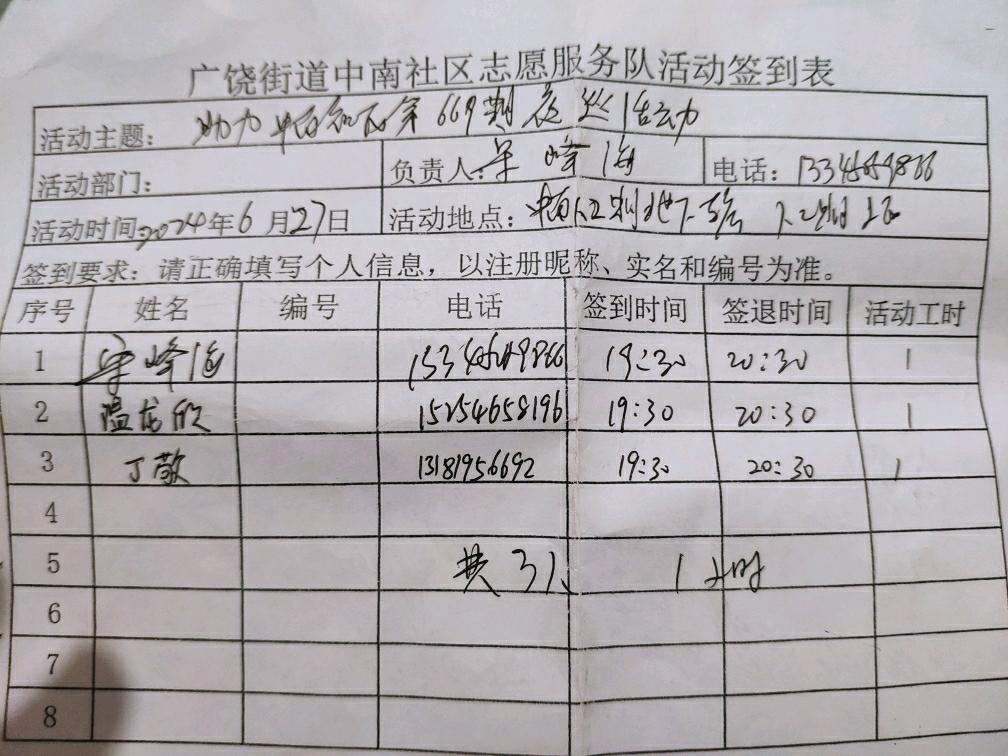 广饶街道中南社区志愿服务队活动签到表
活动主题： 助力中南知府第669期夜巡活动
活动部门： 负责人： 峰海 电话：
活动时间：2024年6月27日 活动地点：
签到要求：请正确填写个人信息，以注册昵称、实名和编号为准。
序号 姓名 编号 电话 签到时间 签退时间 活动工时
1 峰海 19:30 20:30 1
2 温龙欣 15254658196 19:30 20:30 1
3 丁敬 13181956692 19:30 20:30 1
4
5 共3人 1小时
6
7
8